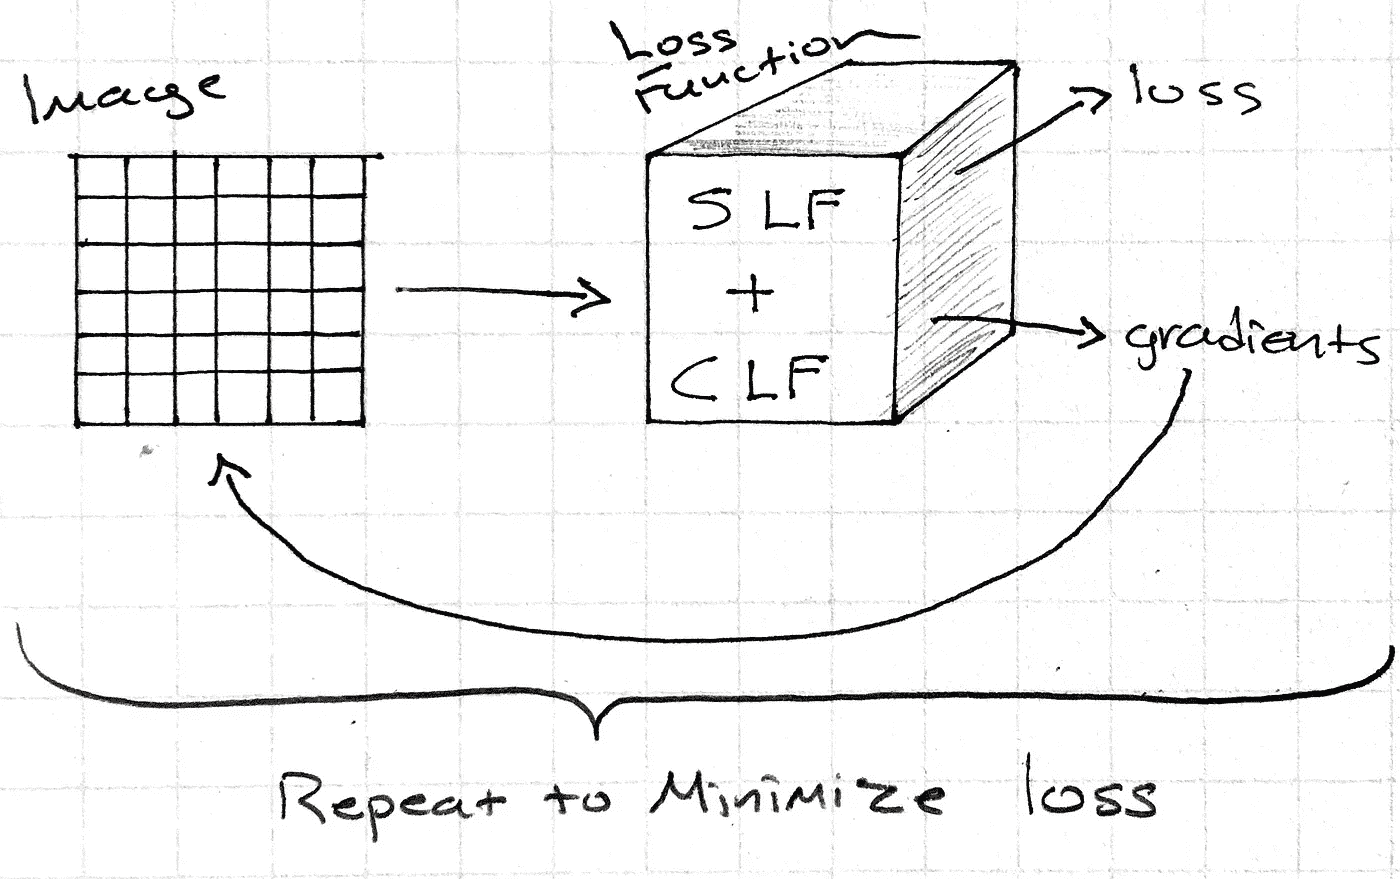 Image
Loss
Function
loss
SLF
+
CLF
gradients
Repeat to Minimize loss